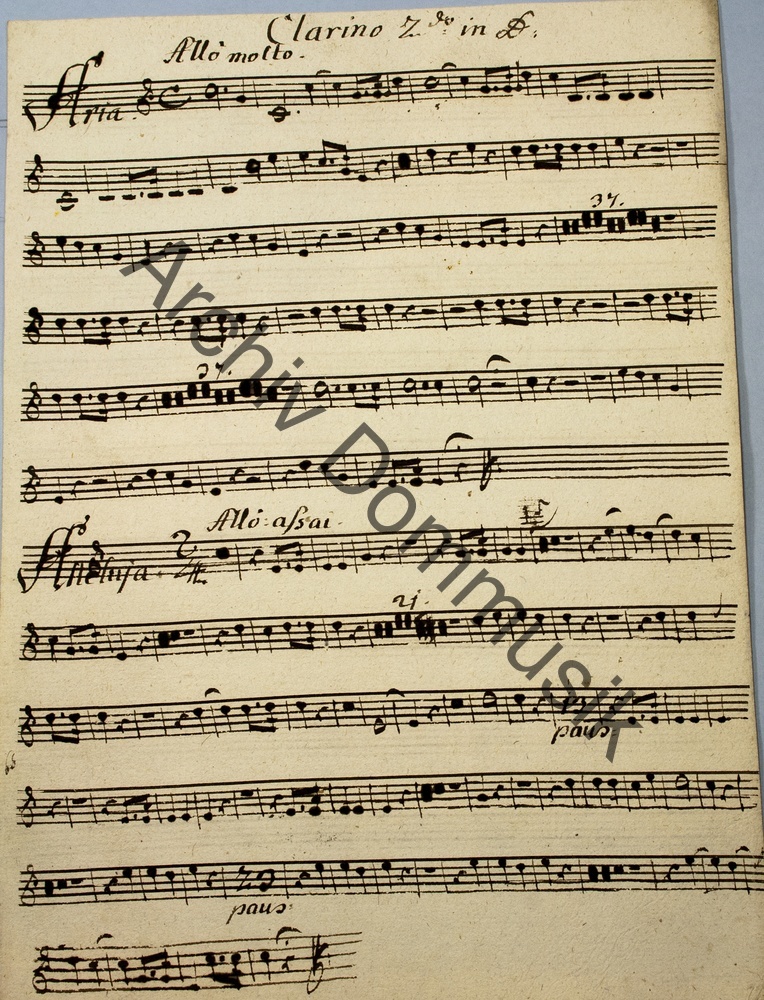 Clarino 2do in D:
Allo molto.
Aria
37.
37.
Allo: assai.
Alleluja 2/4
21.
paus:
paus:
Archiv Dommusik